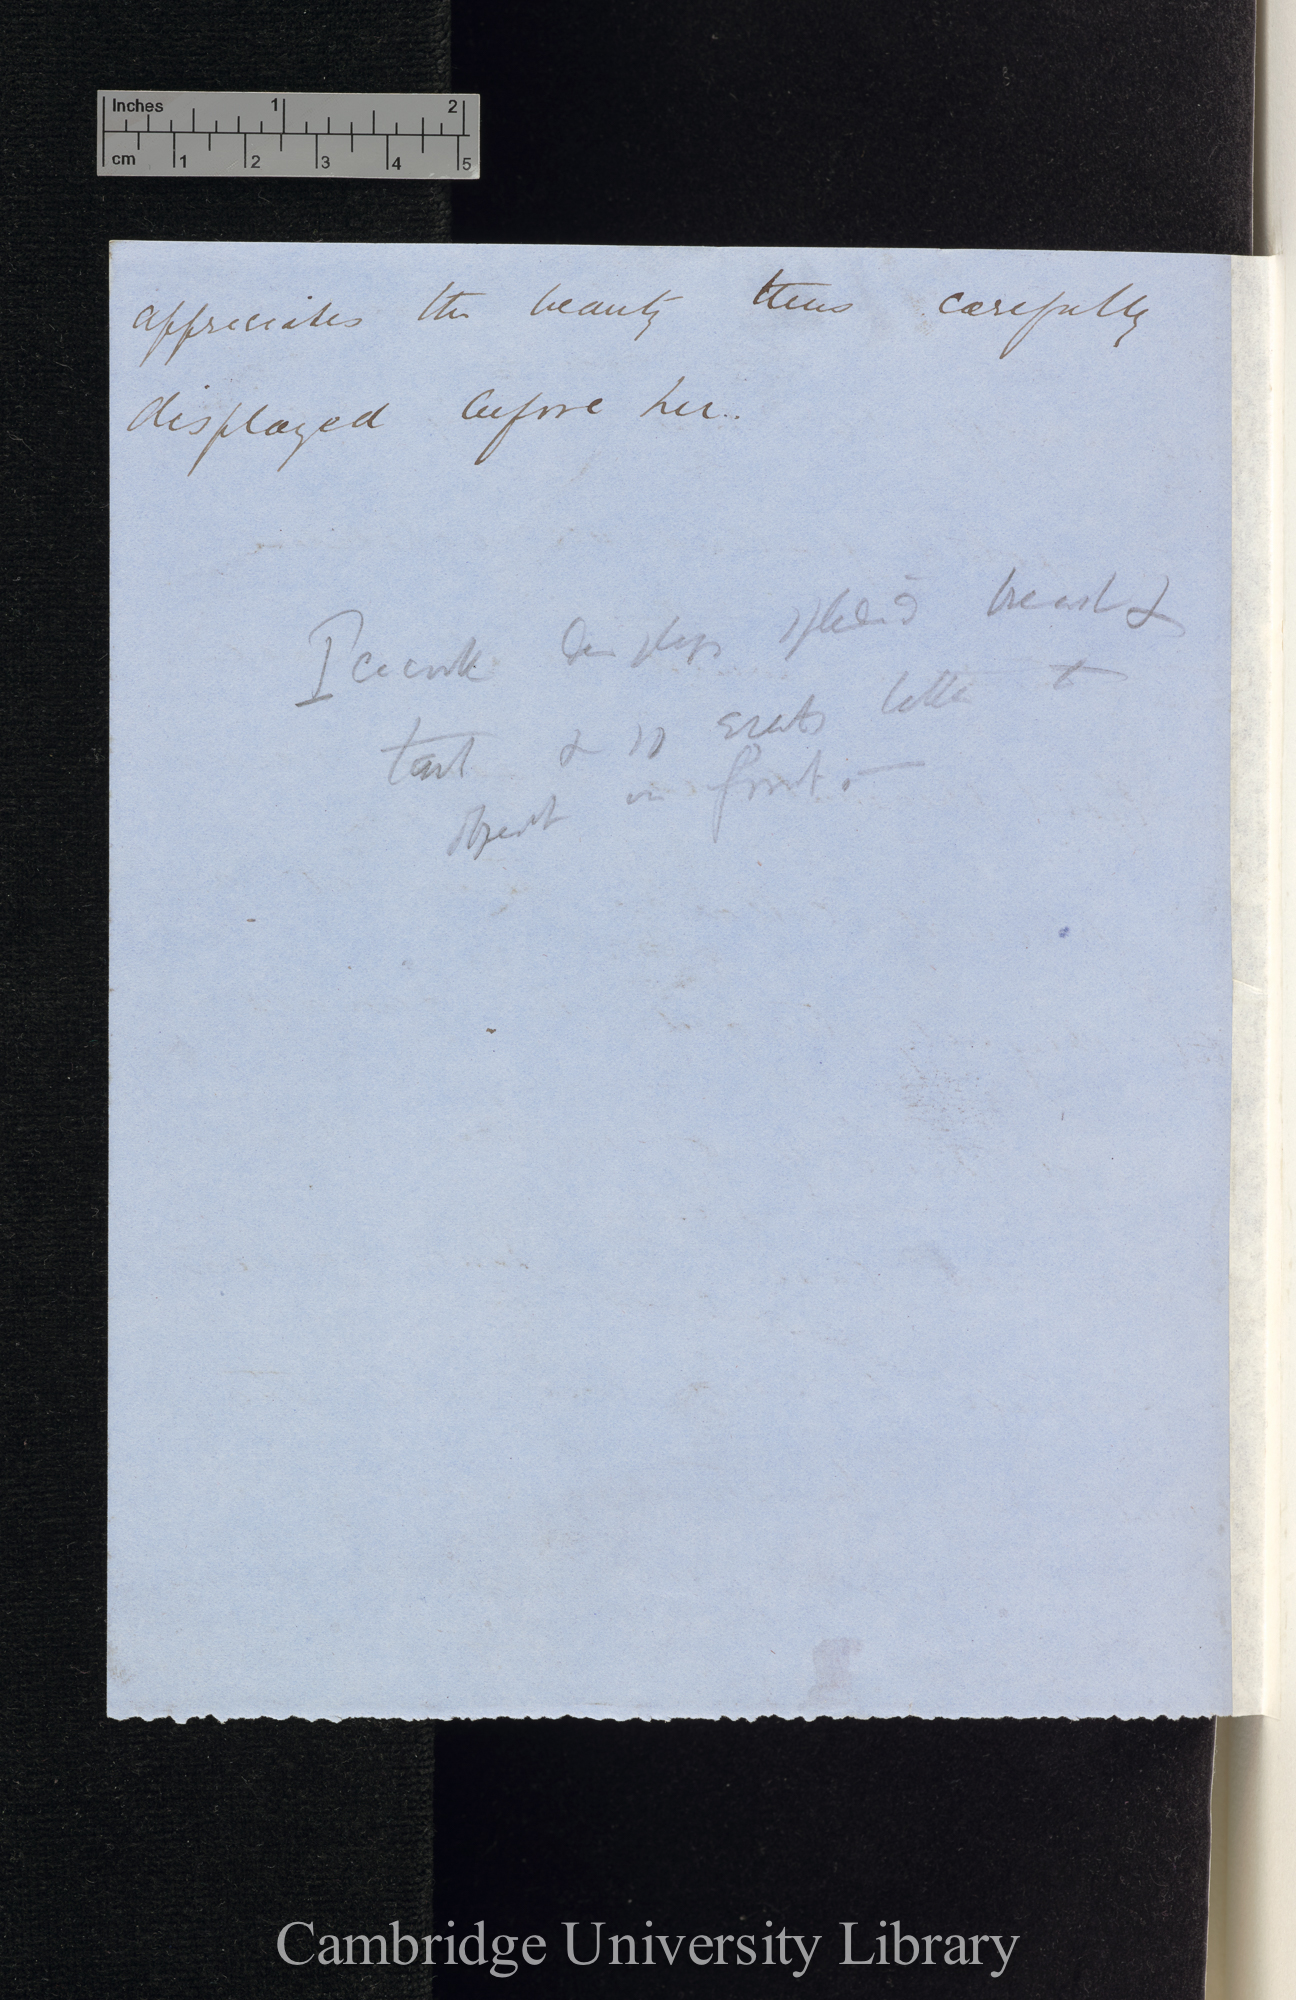 Inches 1 2
cm 1 2 3 4 5
appreciates the beauty thus carefully
displayed before her..
Peacock displays splendid breast &
tail & so erects latter to
object in front. —
Cambridge University Library